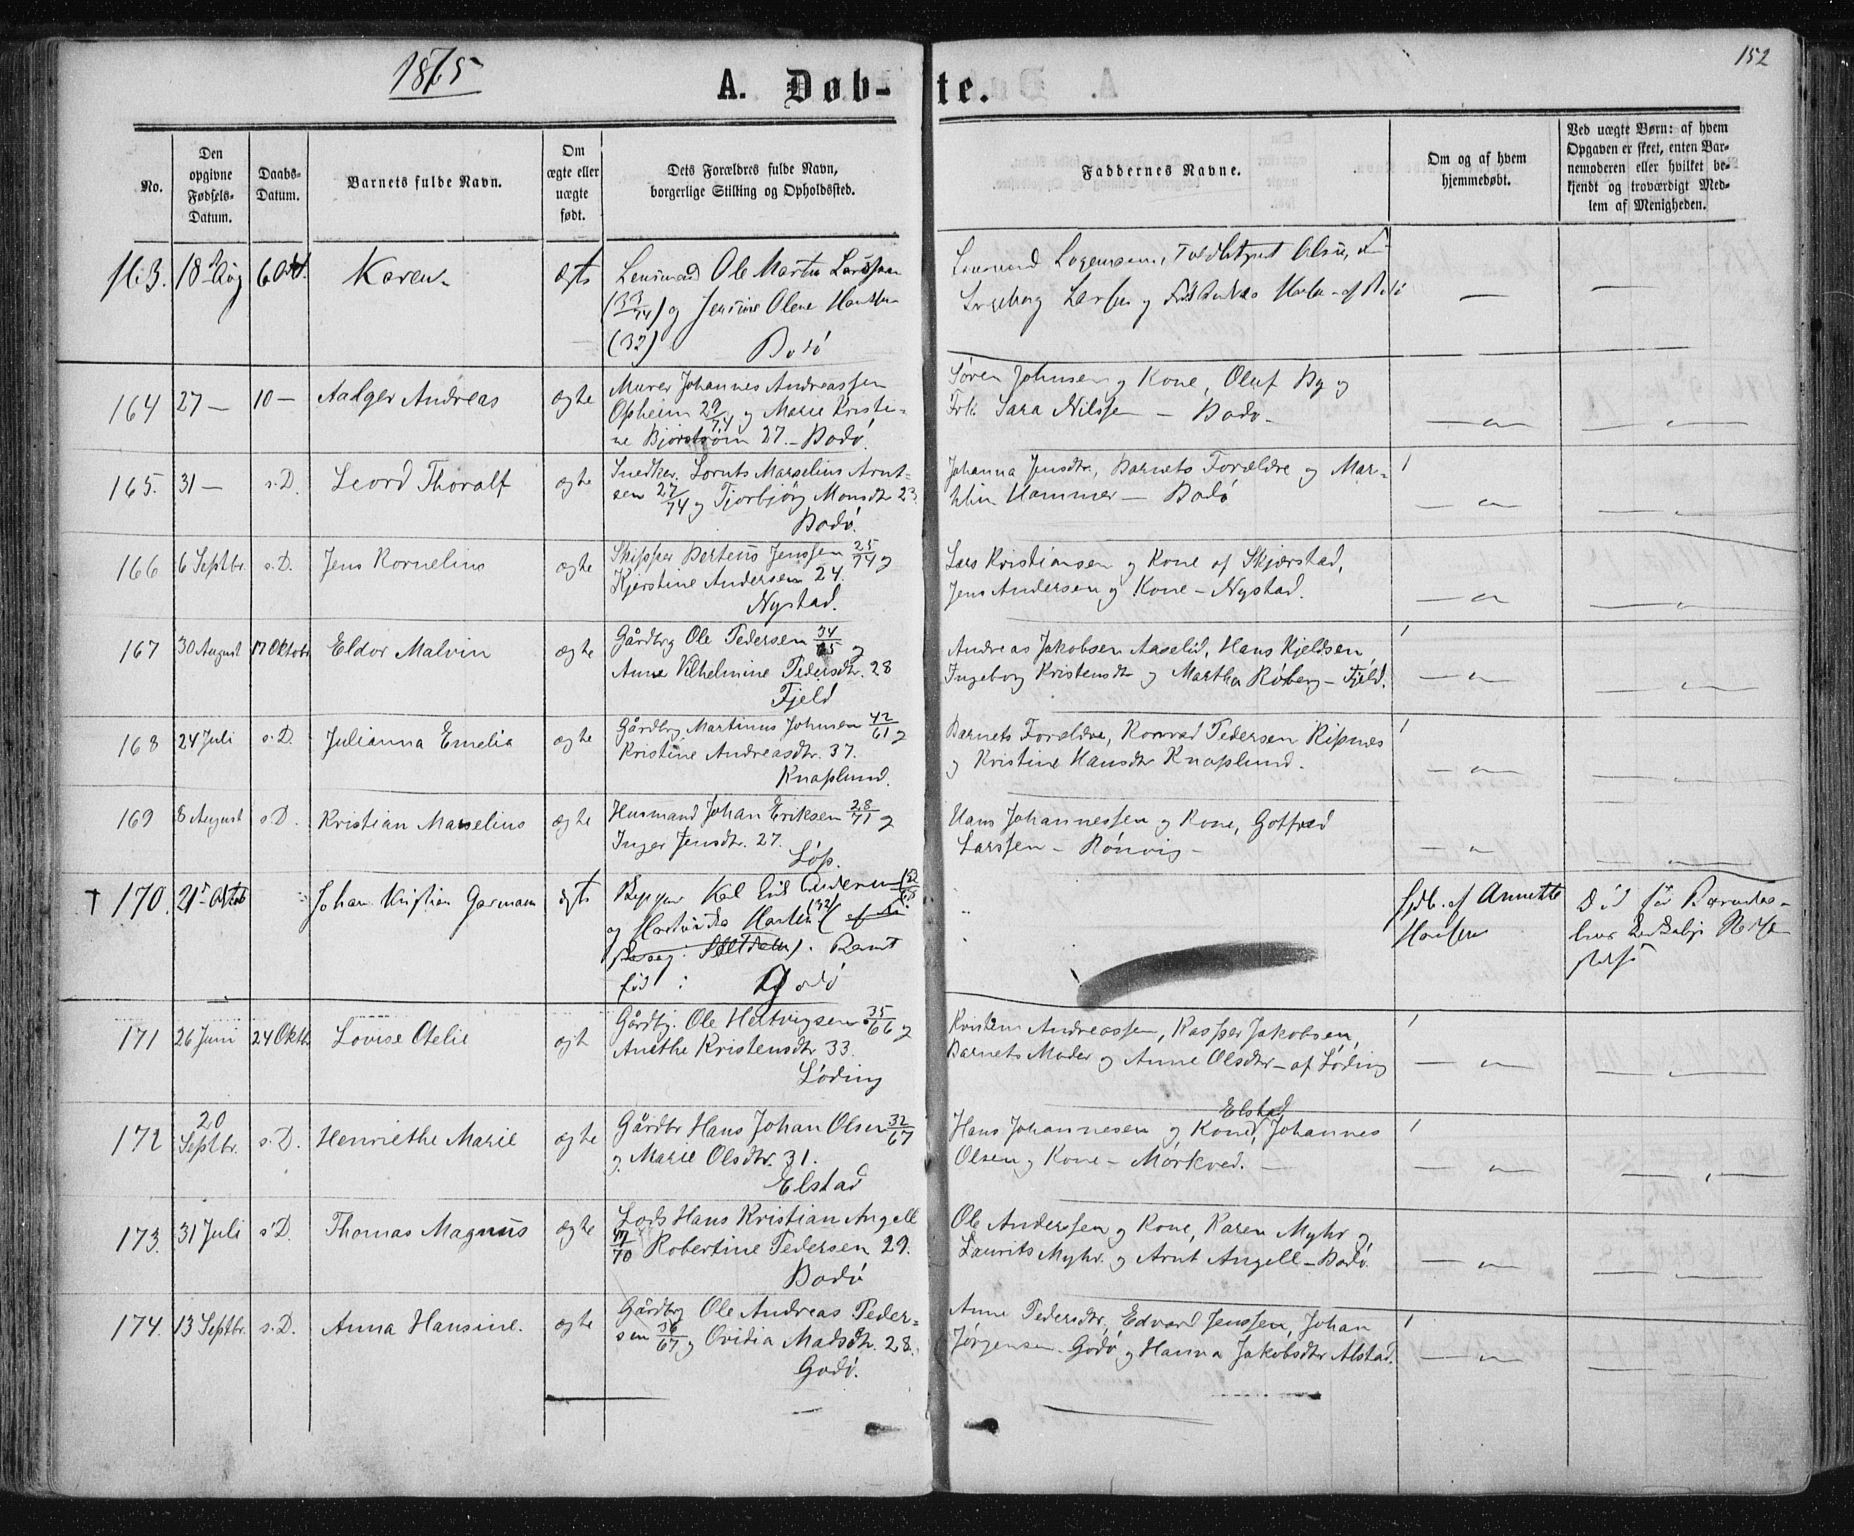 1875
152
A. Døb-te.
No.
Den opgivne Fødsels-Datum.
Daabs-Datum.
Barnets fulde Navn.
Om ægte eller uægte født.
Dets Forældres fulde Navn, borgerlige Stilling og Opholdssted.
Faddernes Navne.
Om og af hvem hjemmedøbt.
Ved uægte Børn: af hvem Opgaven er skeet, enten Barnemoderen eller hvilket bekjendt og troværdigt Medlem af Menigheden.
163. 18 Aug 6 Okt. Karen ægte
Lensmand Ole Martin
(33/74) og Jensine Olene
(32) Bodø
Lensmand
Ingeborg Larsen og af Bodø
164 27 — 10 — Aalger Andreas ægte
Murer Johannes Andreassen
Opheim 29/74 og Marie Kristi-
ne Bjørstrøm 27. – Bodø.
Søren Johnsen og Kone, Oluf By og
Frk. Sara Nilssen — Bodø
165. 31 — s.D. Leord Thoralf ægte
Snedker Lornts Marselius Arnt-
sen 27/74 og Tjorbjörg Monsdtr 23.
Bodø.
Johanna Jensdtr., Barnets Forældre og Mar-
Hammer — Bodø
166 6 Septbr. s.D. Jens Kornelius ægte
Skipper Berteus Jenssen 25/74 og
Kjerstine Andersen 24.
Nystad.
Lars Kristiansen og Kone af Skjærstad,
Jens Andersen og Kone – Nystad.
167 30 August 17 Oktobr Eldor Malvin ægte
Gårdbrg Ole Pedersen 34/65 og
Anne Vilhelmine Pedersdtr. 28
Fjeld
Andreas Jakobsen Aaselid, Hans Kjeldsen,
Ingeborg Kristensdtr og Martha Röberg – Fjeld.
168 24 Juli s.D. Julianna Emelia ægte
Gårdbrg. Martinus Johnsen 42/61 og
Kristine Andreasdtr. 37.
Knaplund.
Barnets Forældre, Konrad Pedersen Ripnes
og Kristine Hansdtr Knaplund.
169 8 August s.D. Kristian Marselius ægte
Husmand Johan Eriksen 28/71 og
Inger Jensdtr. 27.
Løp.
Hans Johannessen og Kone, Gotfred
Larssen – Rönvig –
† 170. 21 Johan Kristian Garmann ægte
Bodø
hjdb. af Annette
Hansen
171 26 Juni 24 Oktb. Lovise Otelie ægt
Gårdbg. Ole Hertvigsen 35/66 og
Anethe Kristensdtr 33.
Løding
Kristen Andreassen, Kasper Jakobsen,
Barnets Moder og Anne Olsdtr – af Løding
172 20 Septbr. s.D. Henriethe Marie ægte
Gårdbr Hans Johan Olsen 32/67
og Marie Olsdtr. 31.
Elstad
Elstad
Hans Johannesen og Kone, Johannes
Olsen og Kone – Mörkved. —
173. 31 Juli s.D. Thomas Magnus ægte
Lods Hans Kristian Angell
41/70 Robertine Pedersen 29.
Bodø
Ole Anderssen og Kone, Karen Myhr og
Laurits Myhr og Arnt Angell – Bodø.
174. 13 Septbr. s.D. Anna Hansine. ægte
Gårdbrg Ole Andreas Peder-
sen 36/67 og Ovidia Madsdtr. 28.
Godø.
Anne Pedersdtr, Edvard Jenssen, Johan
Jørgensen Godø og Hanna Jakobsdtr Alstad.